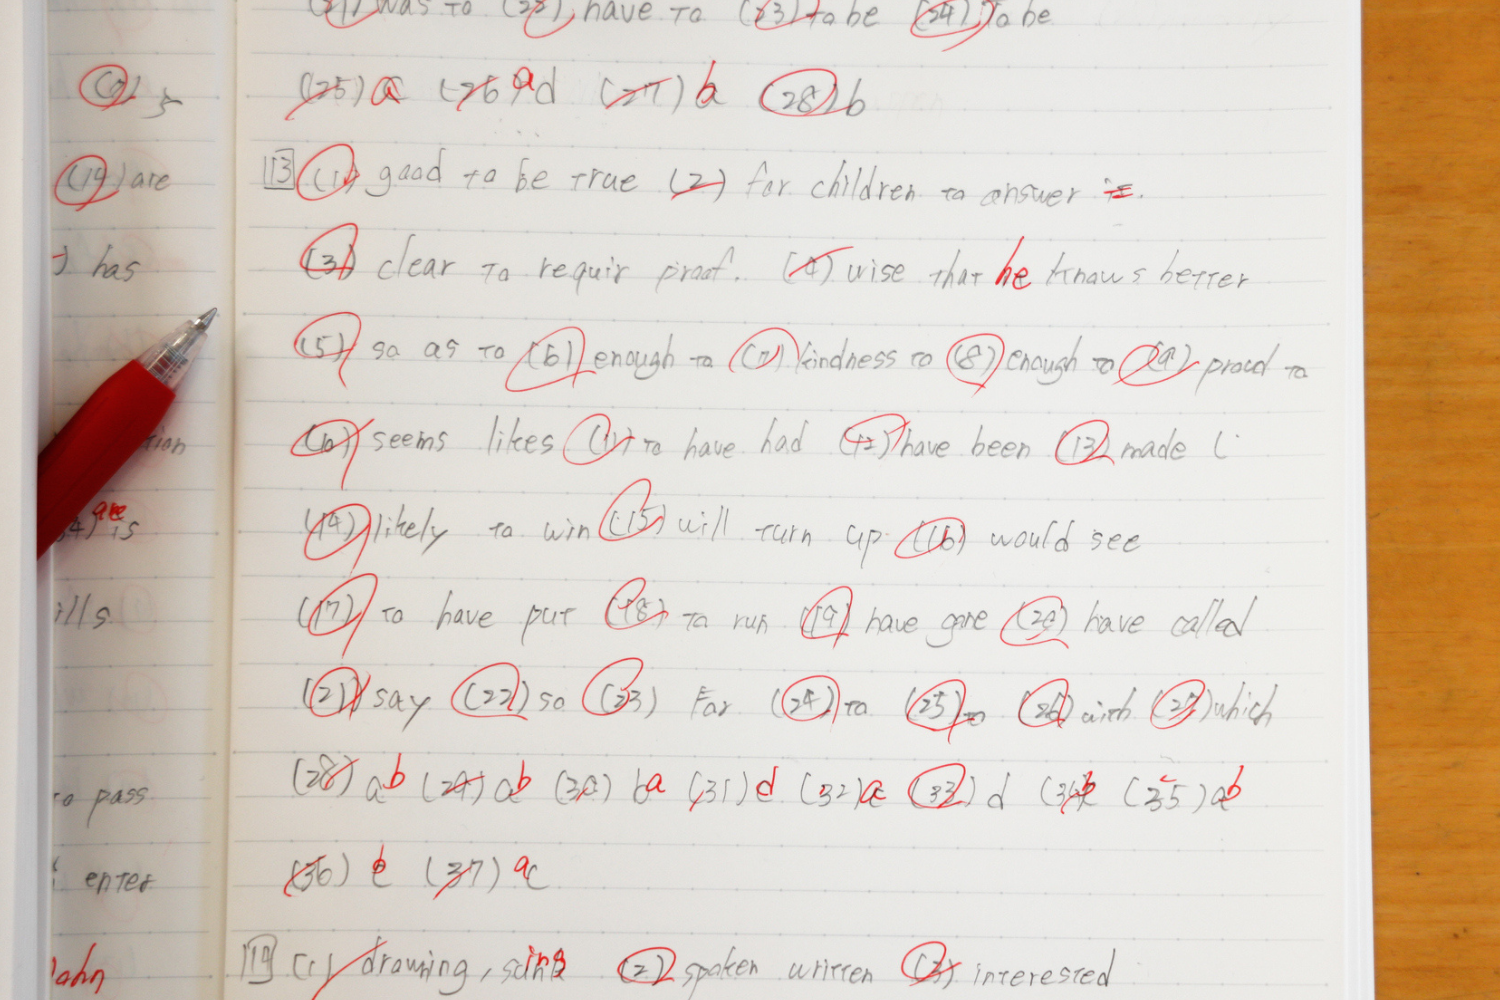 (21) was to (22) have to (23) to be (24) to be
(25) a (26) a d (27) b (28) b
13 (1) good to be true (2) for children to answer it.
(14) are
(3) clear to requir proof. (4) wise that he knows better
has
(5) so as to (6) enough to (7) kindness to (8) enough to (9) proud to
(10) seems likes (11) to have had (12) have been (13) made
tion
(14) likely to win (15) will turn up (16) would see
are is
(17) to have put (18) to run (19) have gone (20) have called
ills
(21) say (22) so (23) For (24) to (25) to (26) with (27) which
(28) a b (29) a b (30) b a (31) d (32) a (33) d (34) b (35) a b
to pass
(36) b (37) a c
enter
14 (1) drawing, sing (2) spoken written (3) interested